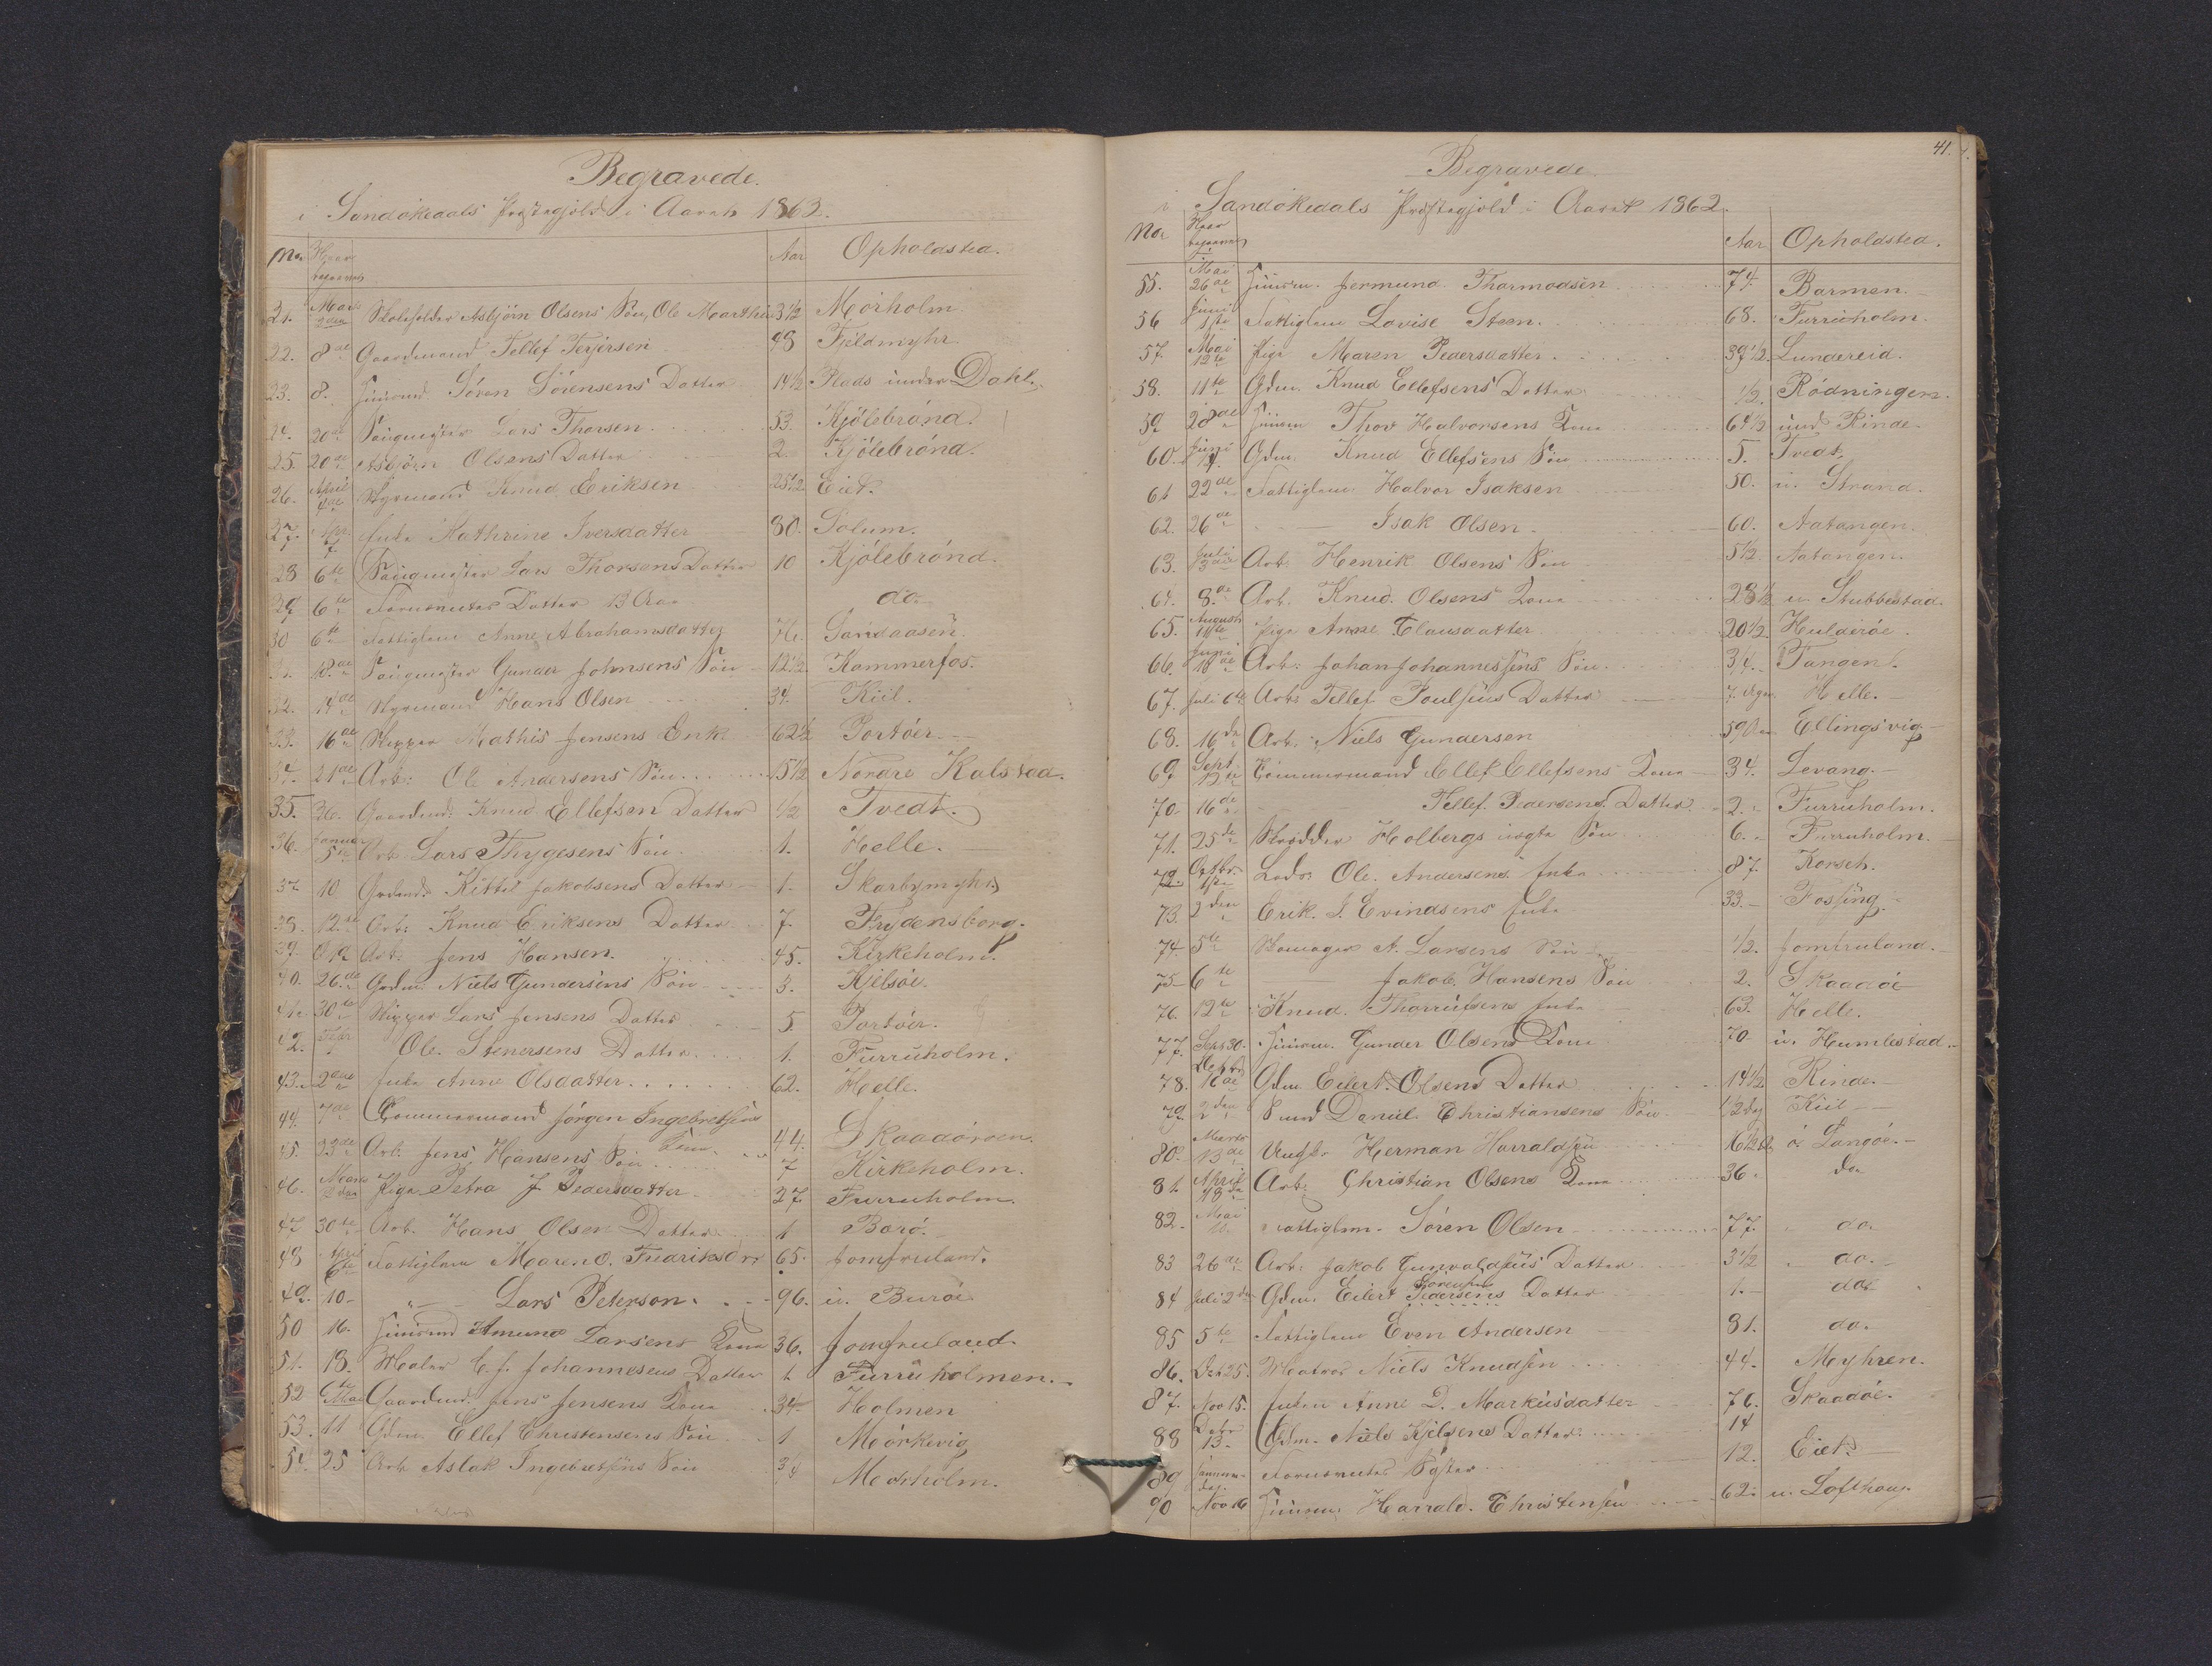 Begravede.
i Sandökedals Præstegjeld i Aaret 1863.
No Hvor begravet Aar Opholdsted.
21. Mars 2den Skoleholder Asbjörn Olsens Sön, Ole Marthin 3 1/2 Mörholm
22. 8de Gaardmand Tellef Terjersen 48 Fjeldmyhr.
23. 8. Huusmd. Sören Sörensens Datter 14 1/2 Plads under Dahl.
24. 20de Saugmester Lars Thorsen 53. Kjölebrönd.
25. 20de Asbjörn Olsens Datter 2. Kjölebrönd.
26. April 4de Styrmand Knud Eriksen 25 1/2 Eiet.
27. 7 Enke Kathrine Iversdatter 80. Solum.
28 6te Saugmester Lars Thorsens Datter 10 Kjölebrönd.
29. 6te Fornevnter Datter 13 Aar do.
30 6te Fattiglem Anne Abrahamsdatter Sandaasen.
18de Saugmester Gunder Johnsens Sön 12 1/2 Kammerfos.
32. 14de Styrmand Hans Olsen 34. Kiil.
16de Skipper Mathis Jensens Enke 62 1/2 Portöer.
21de Arb: Ole Andersens Sön 15 1/2 Nordre Kalstad.
35. 26. Gaardmd: Knud Ellefsen Datter 1/2 Tvedt.
36. Januar 5te Arb. Lars Thygesens Sön 1. Helle.
37 10 Grdmd. Kittel Jakobsens Datter 1. Skarbymyhr
38. 12te Arb: Knud Eriksens Datter 7. Frydensborg.
39. Arb. Jens Hansen. 45. Kirkeholm.
40. 26de Grdm. Niels Gundersens Sön 3. Kjelsöe.
41. 30te Skipper Lars Jensens Datter 5. Portöer.
42. Febr Ole. Stenersens Datter 1. Furruholm.
43. 2den Enke Anne Olsdatter 62. Helle.
44. 7de Tömmermand Jörgen Ingebretsens Kone 44. Skaadöroen.
45. 23de Arb. Jens Hansens Sön 7 Kirkeholm.
46. Mars 2den Pige Petra J Pedersdatter 27 Furruholm.
47 30te Arb. Hans Olsen Datter 1 Borö.
48 April 6te Fattiglem Maren O. Fredriksdtr 65. Jomfruland.
49. 10 " Lars Peterson. 96. u. Buröe
50 16. Huusmd Amund Larsens Kone 36. Jomfruland.
51. 18. Maler C. J. Johannesens Datter 1 Furruholmen.
52 6te Mai Gaardmd. Jens Jensens Kone 34 Holmen
53. 11 Gdm. Ellef Christensens Sön 1 Mörkevig
54. 25 Arb Aslak Ingebretsens Sön 3/4 Moerholm.
41.
Begravede
i Sandökedals Præstegjeld i Aaret 1862.
No. Hvor begravet Aar Opholdsted.
55. Mai 26de Huusm. Jermund Thormodsen 74. Barmen.
56 Juni 1ste Fattiglem Lovise Steen. 68. Furruholm.
57. Mai 12te Pige Maren Pedersdatter 39 1/2. Lundereid.
58. 11te Gdm. Knud Ellefsens Datter 1/2. Rödningen.
59 28de Huusm Thor Halvorsens Kone 64 1/2 und Rinde.
60. Juni Gdm. Knud Ellefsens Sön 5. Tvedt.
61 22de Fattiglem Halvor Isaksen 50. u. Strand.
62. 26de Isak Olsen. 60. Aatangen.
63. Juli 13de Arb. Henrik Olsens Sön 5 1/2. Aatangen.
64. 8de Arb. Knud. Olsens Kone 28 1/2 u. Stubbestad.
65. August 14de Pige Anne Clausdatter 20 1/2 Hulderöe.
66. Juni 18de Arb: Johan Johannesens Sön. 3/4. Tangen.
67. Juli 6te Arb: Tellef Poulsens Datter 7. Uger Helle.
68. 16de Arb: Niels Gundersen 59 Aar Ellingsvig
69 Sept. 12te Tömmermand Ellef Ellefsens Kone 34. Levang.
70. 16de Tellef. Pedersens Datter 2. Furruholm.
71. 25de Skrædder Holbergs uægte Sön 6. Furruholm.
72. Octbr. 1ste Lods. Ole. Andersens Enke 87. Korseh.
73. 2den Erik. J. Evindsens Enke 33. Fossing.
74. 5te Skomager A. Larsens Sön 1/2. Jomfruland.
75. 6te Jakob Hansens Sön 2. Skaadöe
76. 12te Knud. Thorrudsens Enke 63. Helle.
77. Sept 30. Huusm. Gunder Olsens Kone 70 u. Humlestad.
78. Octbr 16de Gdm Eilert. Olsens Datter 14 1/2. Rinde.
79. 2den Smed Daniel Christiansens Sön. 1/2 Dag Kiil
80. Marts 13de Ungk. Herman Harraldsen 16 1/2 ö. Langöe.
81. April 18de Arb: Christian Olsens Kone 36. do
82. Mai 11. Fattiglem. Sören Olsen 77. do.
83 26de Arb: Jakob Gunvaldsens Datter 3 1/2 do.
84 Juli 2den Gdm. Eilert Pedersens Sörensen Datter 1. do.
85 5te Fattiglem Even Andersen 81. do.
86. Oct 25. Matros Niels Knudsen 44. Myhren.
87. Nov 15. Enken Anne D. Markusdatter 76. Skaadöe.
88 Decbr 13. Gdm. Niels Kjelsens Datter 14
89 samme dag. Fornevntes Syster 12. Eiet.
90 Nov 16 Huusm. Harrald. Christensen 62. u. Lofthaug.